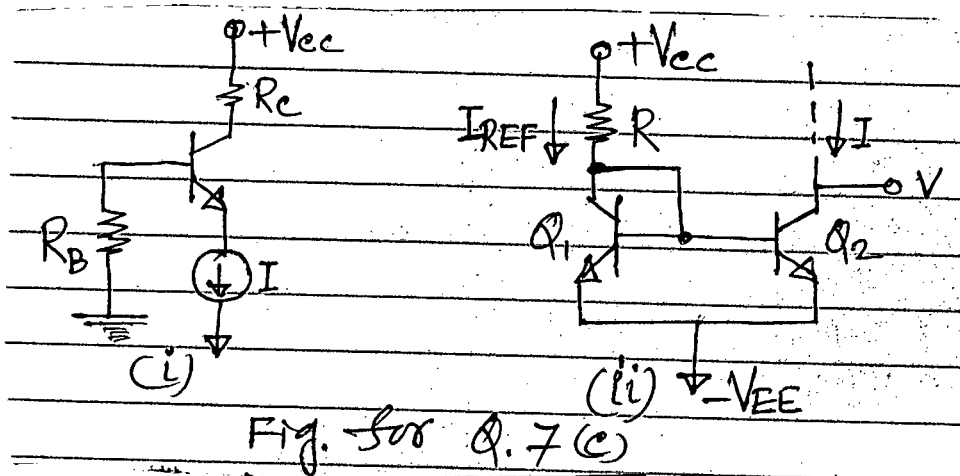 +Vcc
Rc
RB
I
(i)
+Vcc
IREF
R
I
V
Q1
Q2
(ii)
-VEE
Fig. for Q.7 (c)